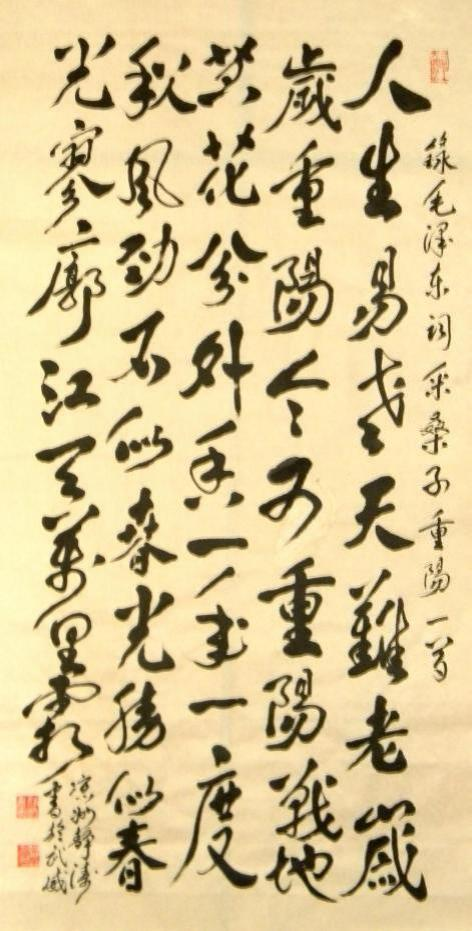 錄毛澤东词采桑子重陽一首
人生易老天難老歲
歲重陽今又重陽戰地
黄花分外香一年一度
秋风勁不似春光勝似春
光寥廓江天萬里霜
凉州静涛
書於武威